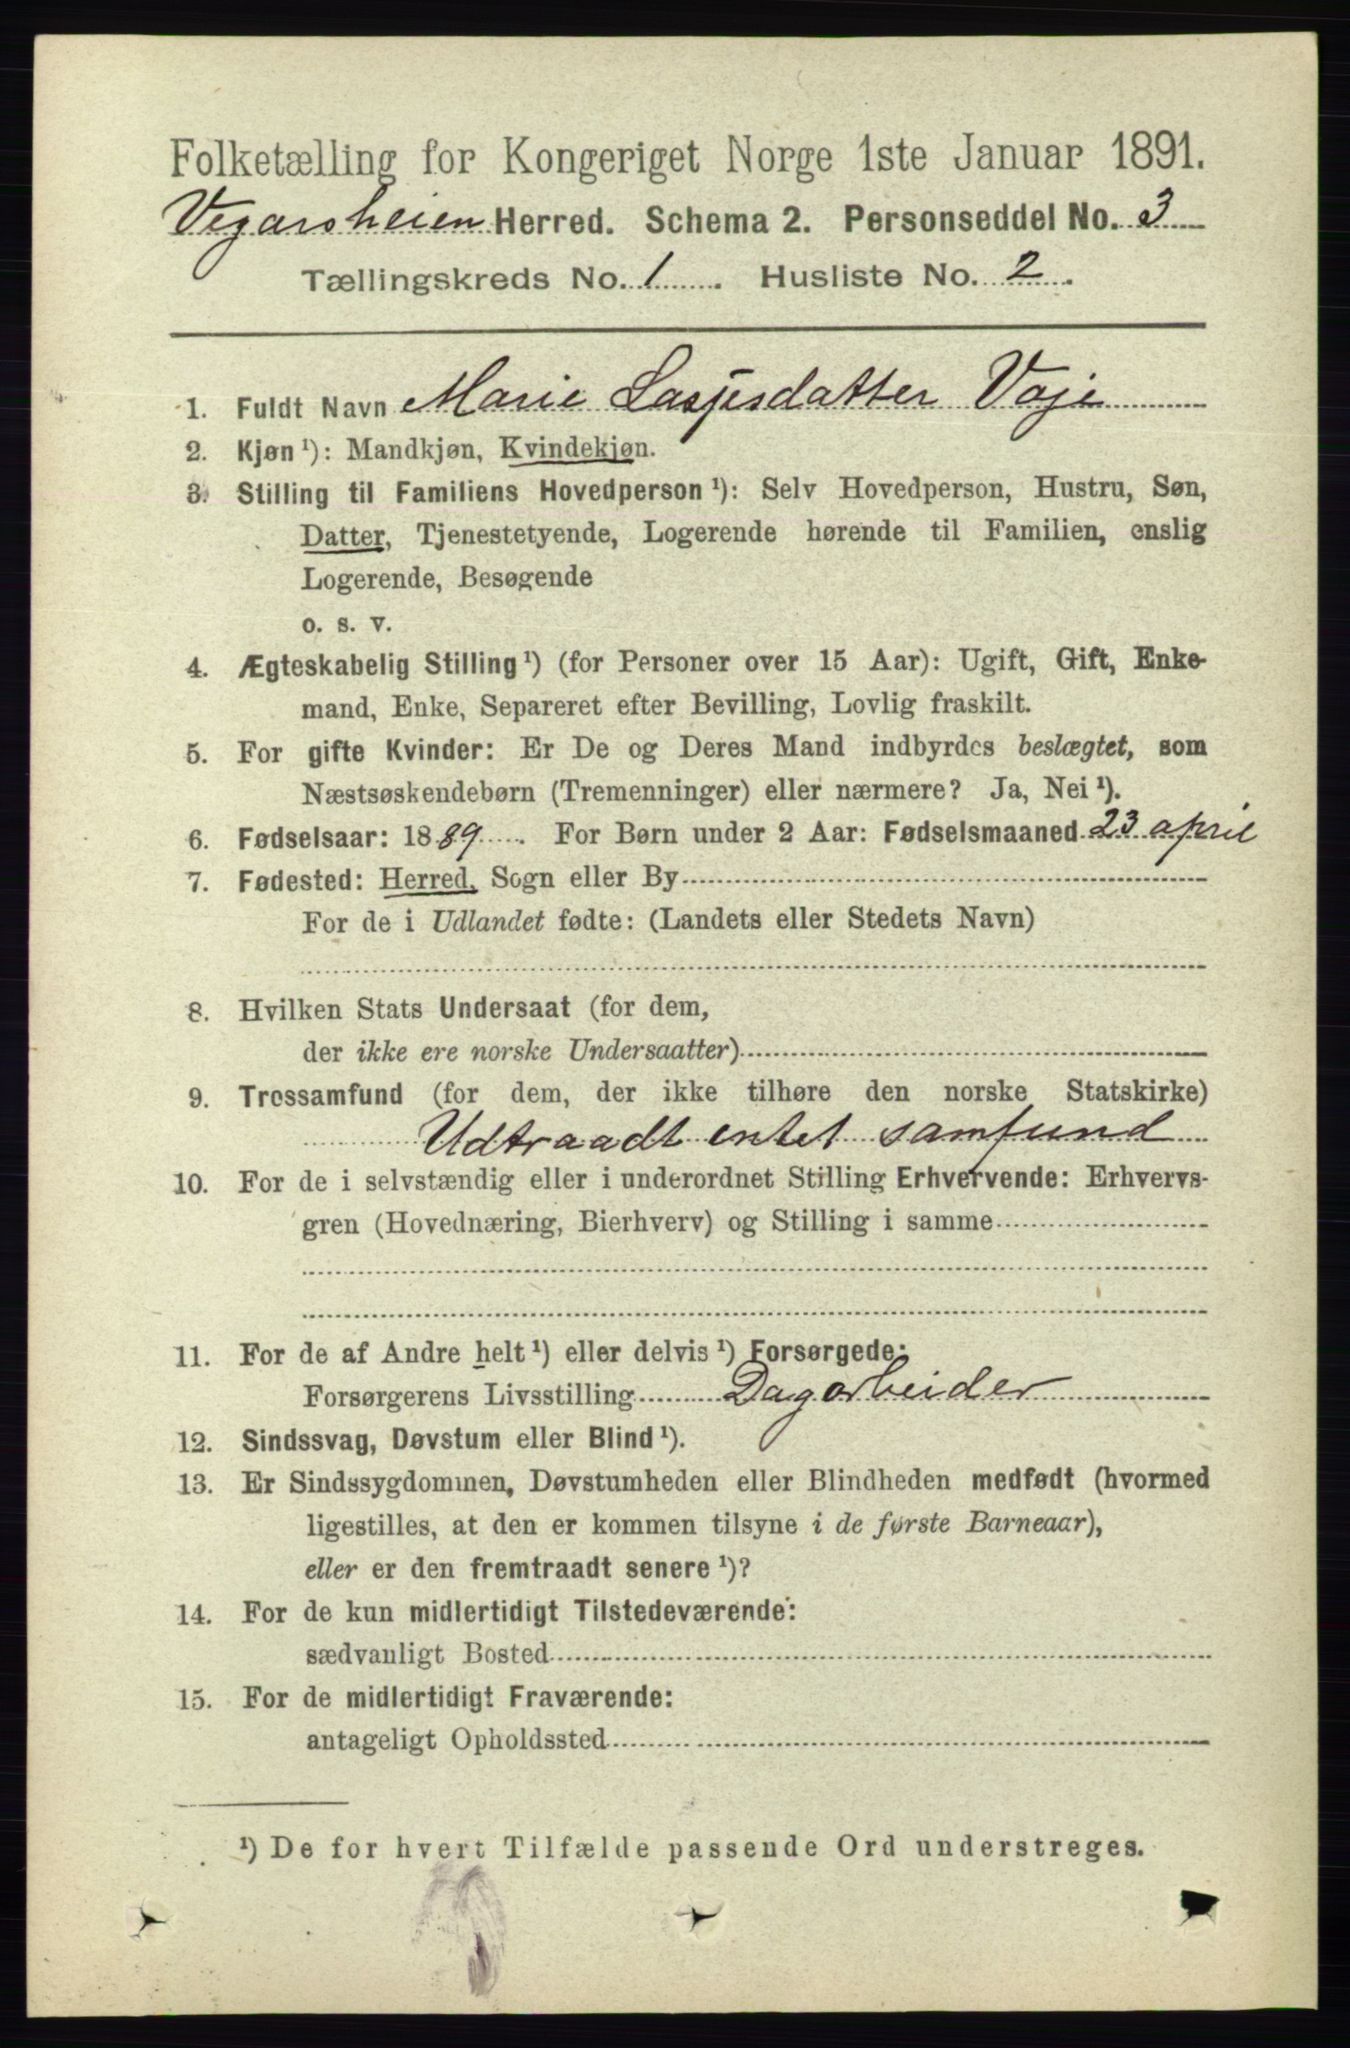 Folketælling for Kongeriget Norge 1ste Januar 1891.
Vegarsheien Herred. Schema 2. Personseddel No. 3
Tællingskreds No. 1. Husliste No. 2.
1. Fuldt Navn Marie Lasjesdatter Voje
2. Kjøn¹): Mandkjøn, Kvindekjøn.
3. Stilling til Familiens Hovedperson¹): Selv Hovedperson, Hustru, Søn,
Datter, Tjenestetyende, Logerende hørende til Familien, enslig
Logerende, Besøgende
o. s. v.
4. Ægteskabelig Stilling¹) (for Personer over 15 Aar): Ugift, Gift, Enke-
mand, Enke, Separeret efter Bevilling, Lovlig fraskilt.
5. For gifte Kvinder: Er De og Deres Mand indbyrdes beslægtet, som
Næstsøskendebørn (Tremenninger) eller nærmere? Ja, Nei¹).
6. Fødselsaar: 1889. For Børn under 2 Aar: Fødselsmaaned 23 april
7. Fødested: Herred, Sogn eller By
For de i Udlandet fødte: (Landets eller Stedets Navn)
8. Hvilken Stats Undersaat (for dem,
der ikke ere norske Undersaatter)
9. Trossamfund (for dem, der ikke tilhøre den norske Statskirke)
Udtraadt intet samfund
10. For de i selvstændig eller i underordnet Stilling Erhvervende: Erhvervs-
gren (Hovednæring, Bierhverv) og Stilling i samme
11. For de af Andre helt¹) eller delvis¹) Forsørgede:
Forsørgerens Livsstilling Dagarbeider
12. Sindssvag, Døvstum eller Blind¹).
13. Er Sindssygdommen, Døvstumheden eller Blindheden medfødt (hvormed
ligestilles, at den er kommen tilsyne i de første Barneaar),
eller er den fremtraadt senere¹)?
14. For de kun midlertidigt Tilstedeværende:
sædvanligt Bosted
15. For de midlertidigt Fraværende:
antageligt Opholdssted
¹) De for hvert Tilfælde passende Ord understreges.